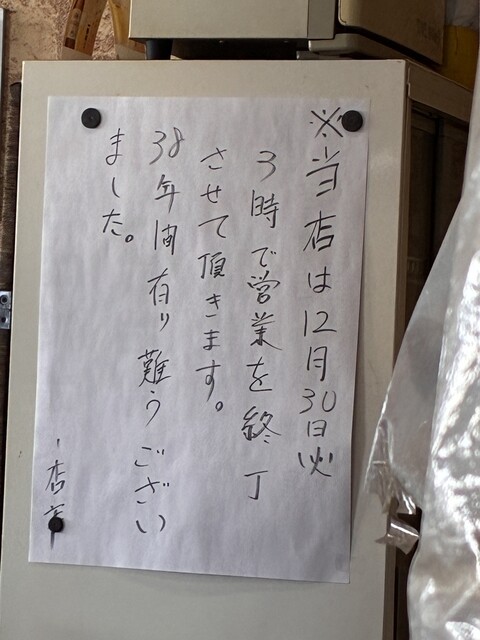 ※当店は12月30日火
3時で営業を終了
させて頂きます。
38年間有り難うござい
ました。
店主